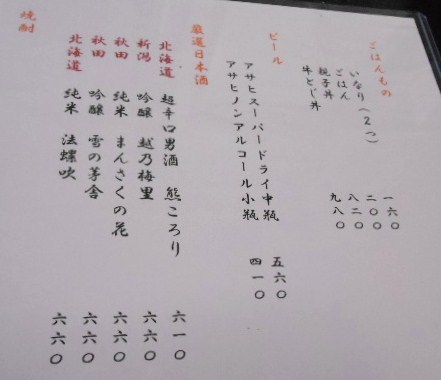 ごはんもの
いなり（２つ） 一六〇
ごはん 二〇〇
親子丼 八二〇
牛とじ丼 九八〇
ビール
アサヒスーパードライ中瓶 五六〇
アサヒノンアルコール小瓶 四一〇
厳選日本酒
北海道 超辛口男酒 熊ころり 六一〇
新潟 吟醸 越乃梅里 六六〇
秋田 純米 まんさくの花 六六〇
秋田 吟醸 雪の茅舎 六六〇
北海道 純米 法螺吹 六六〇
焼酎